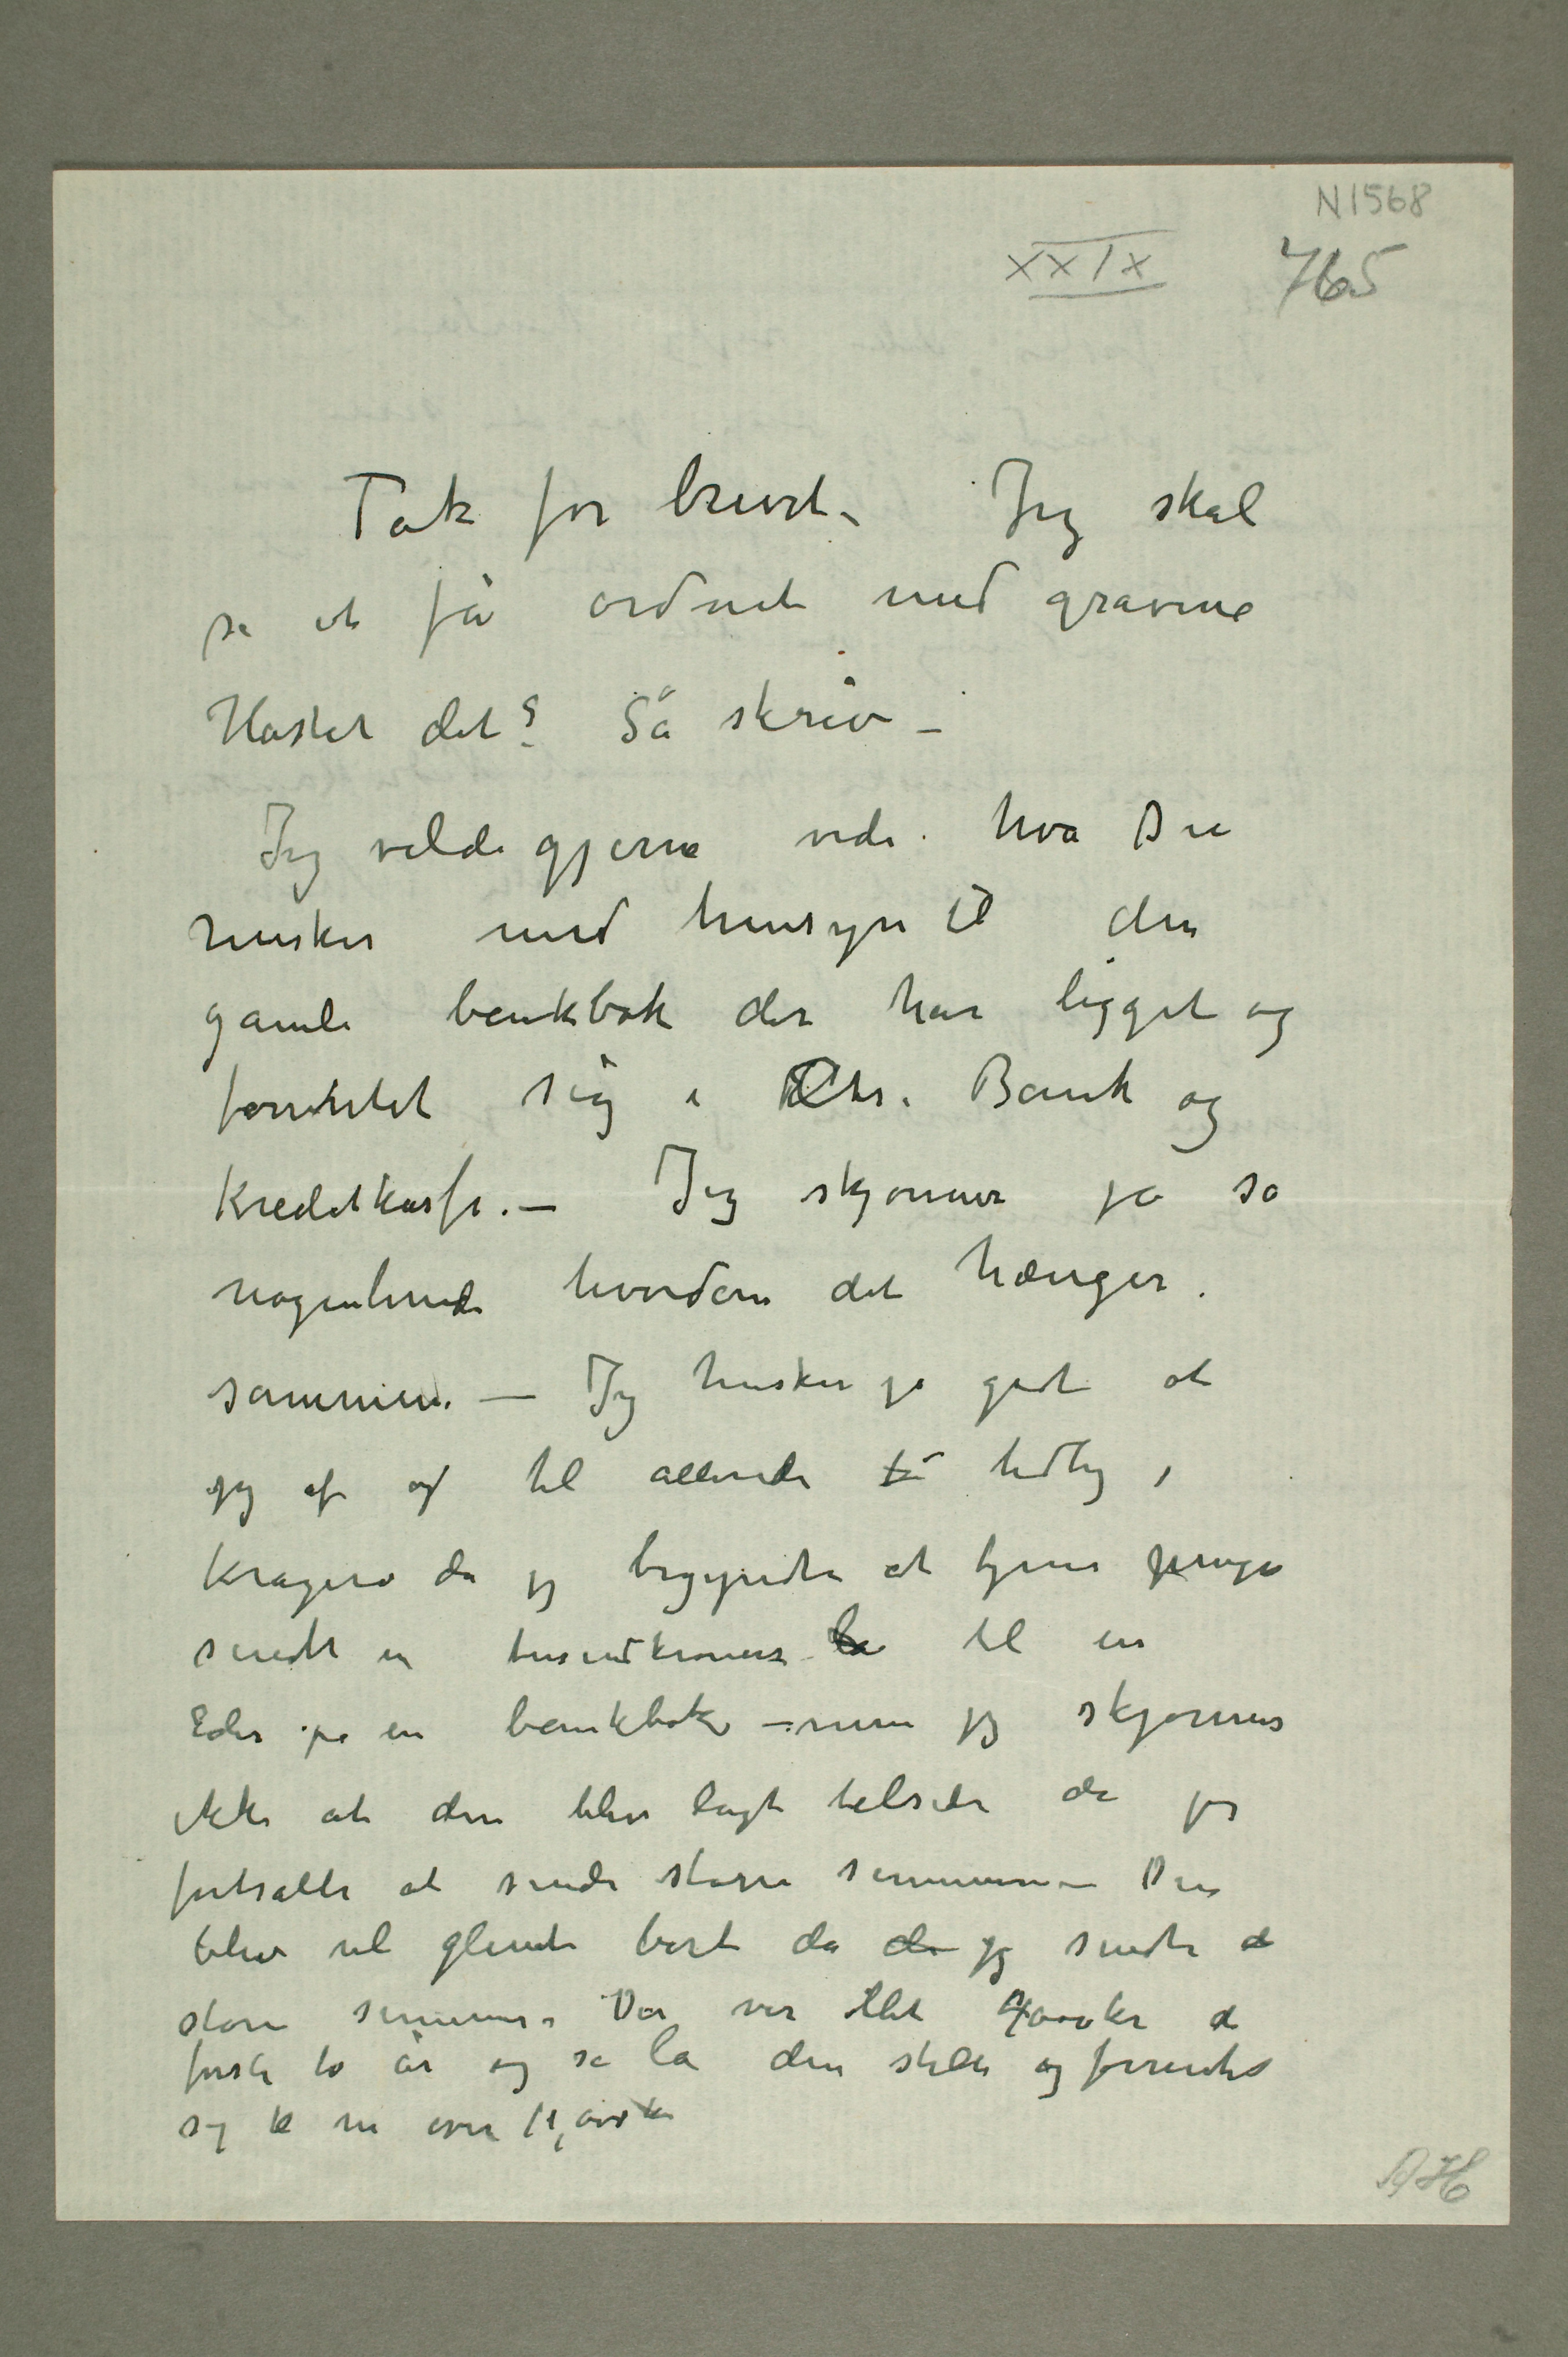 N1568
XXIX 765
Tak for brevet – Jeg skal
se at få ordnet med gravene
Haster det? Så skriv –
Jeg vilde gjerne vide hva Du
husker med hensyn til den
gamle bankbok der har ligget og
forrentet sig i Chr. Bank og
Kreditkasse. – Jeg skjønner jo så
nogenlunde hvordan det hænger
sammen. – Jeg husker jo godt at
jeg af og til allerede tidlig i
Kragerø da jeg begyndte at tjene penge
sendte en tusendkroner til en
Eder på en bankbok – men jeg skjønner
ikke at den blev lagt tilside da jeg
fortsatte at sende større summer – Den
blev vel glemt bort da jeg sendte de
større summer. Der var blit 4000 kr de
første to år og så lå den stille og forrentet
sig til nu over 11,000 kr